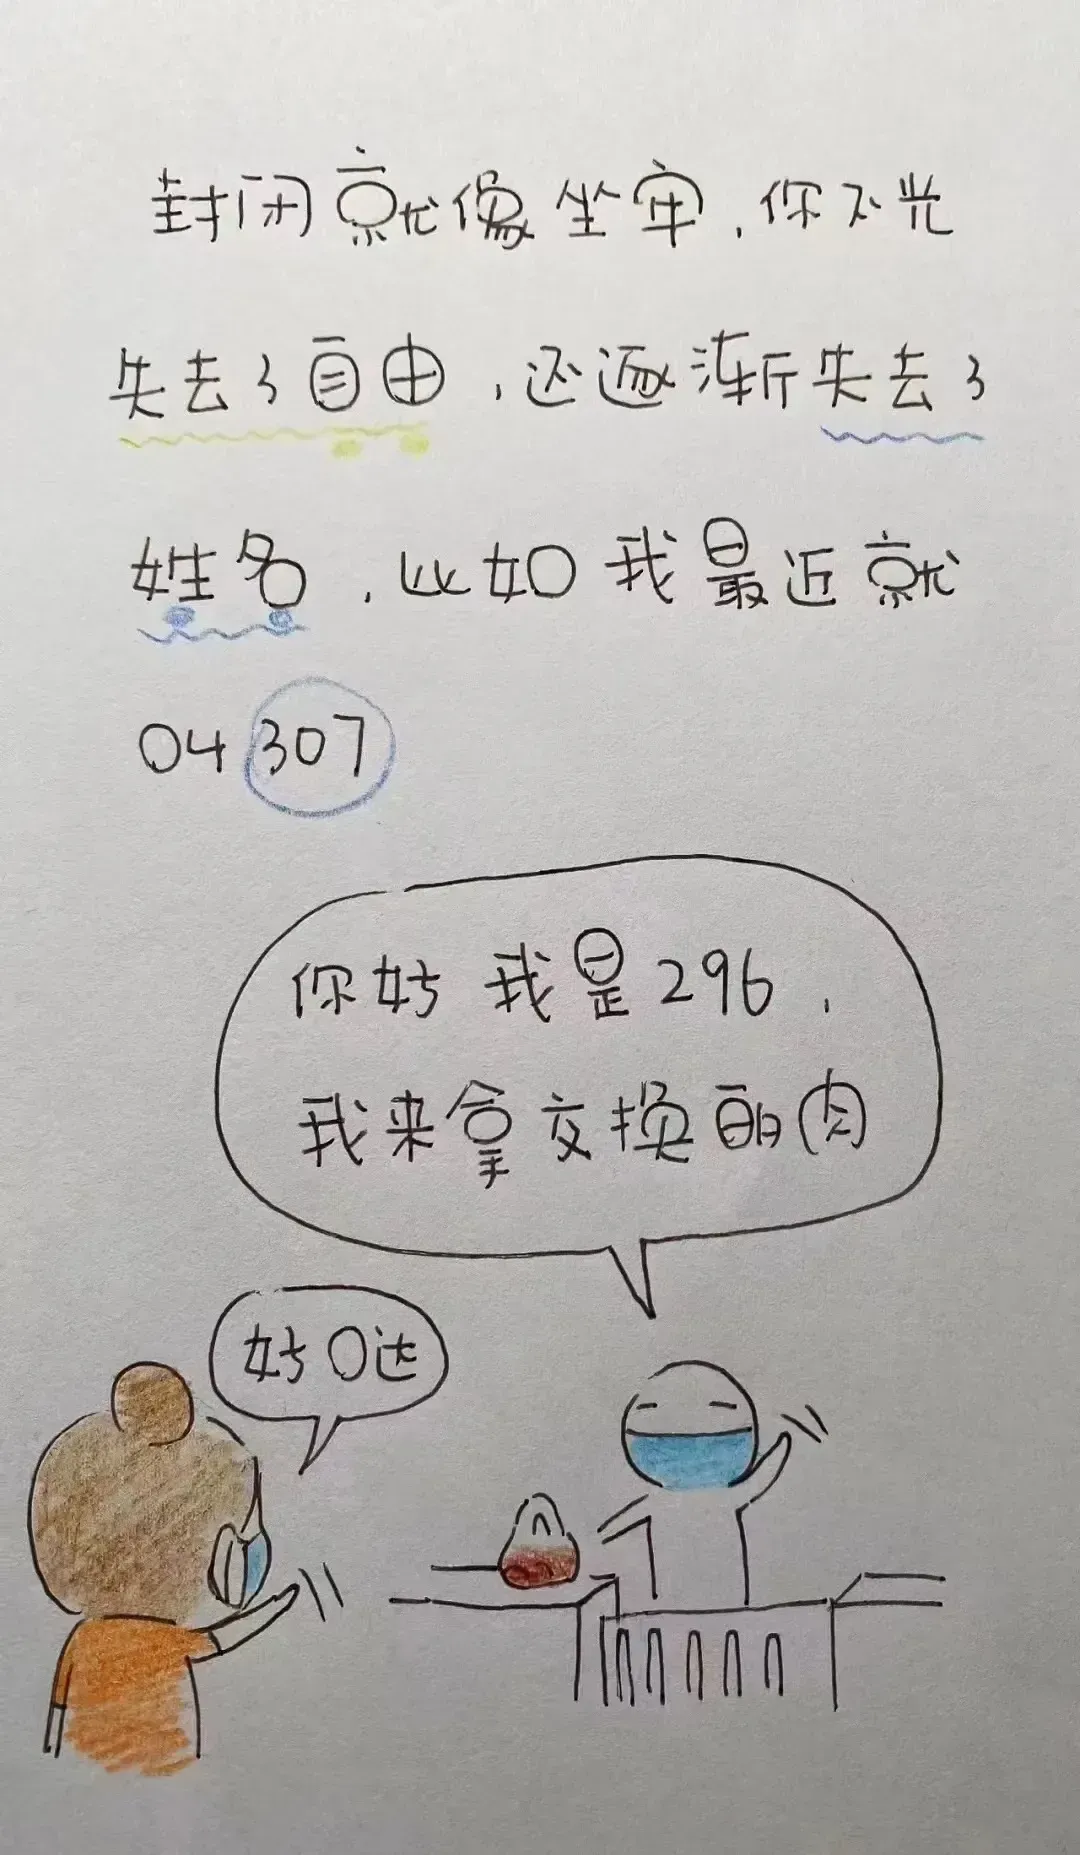 封闭就像坐牢，你不光
失去了自由，还逐渐失去了
姓名，比如我最近就
04307
你好 我是296，
我来拿交换的肉
好哒